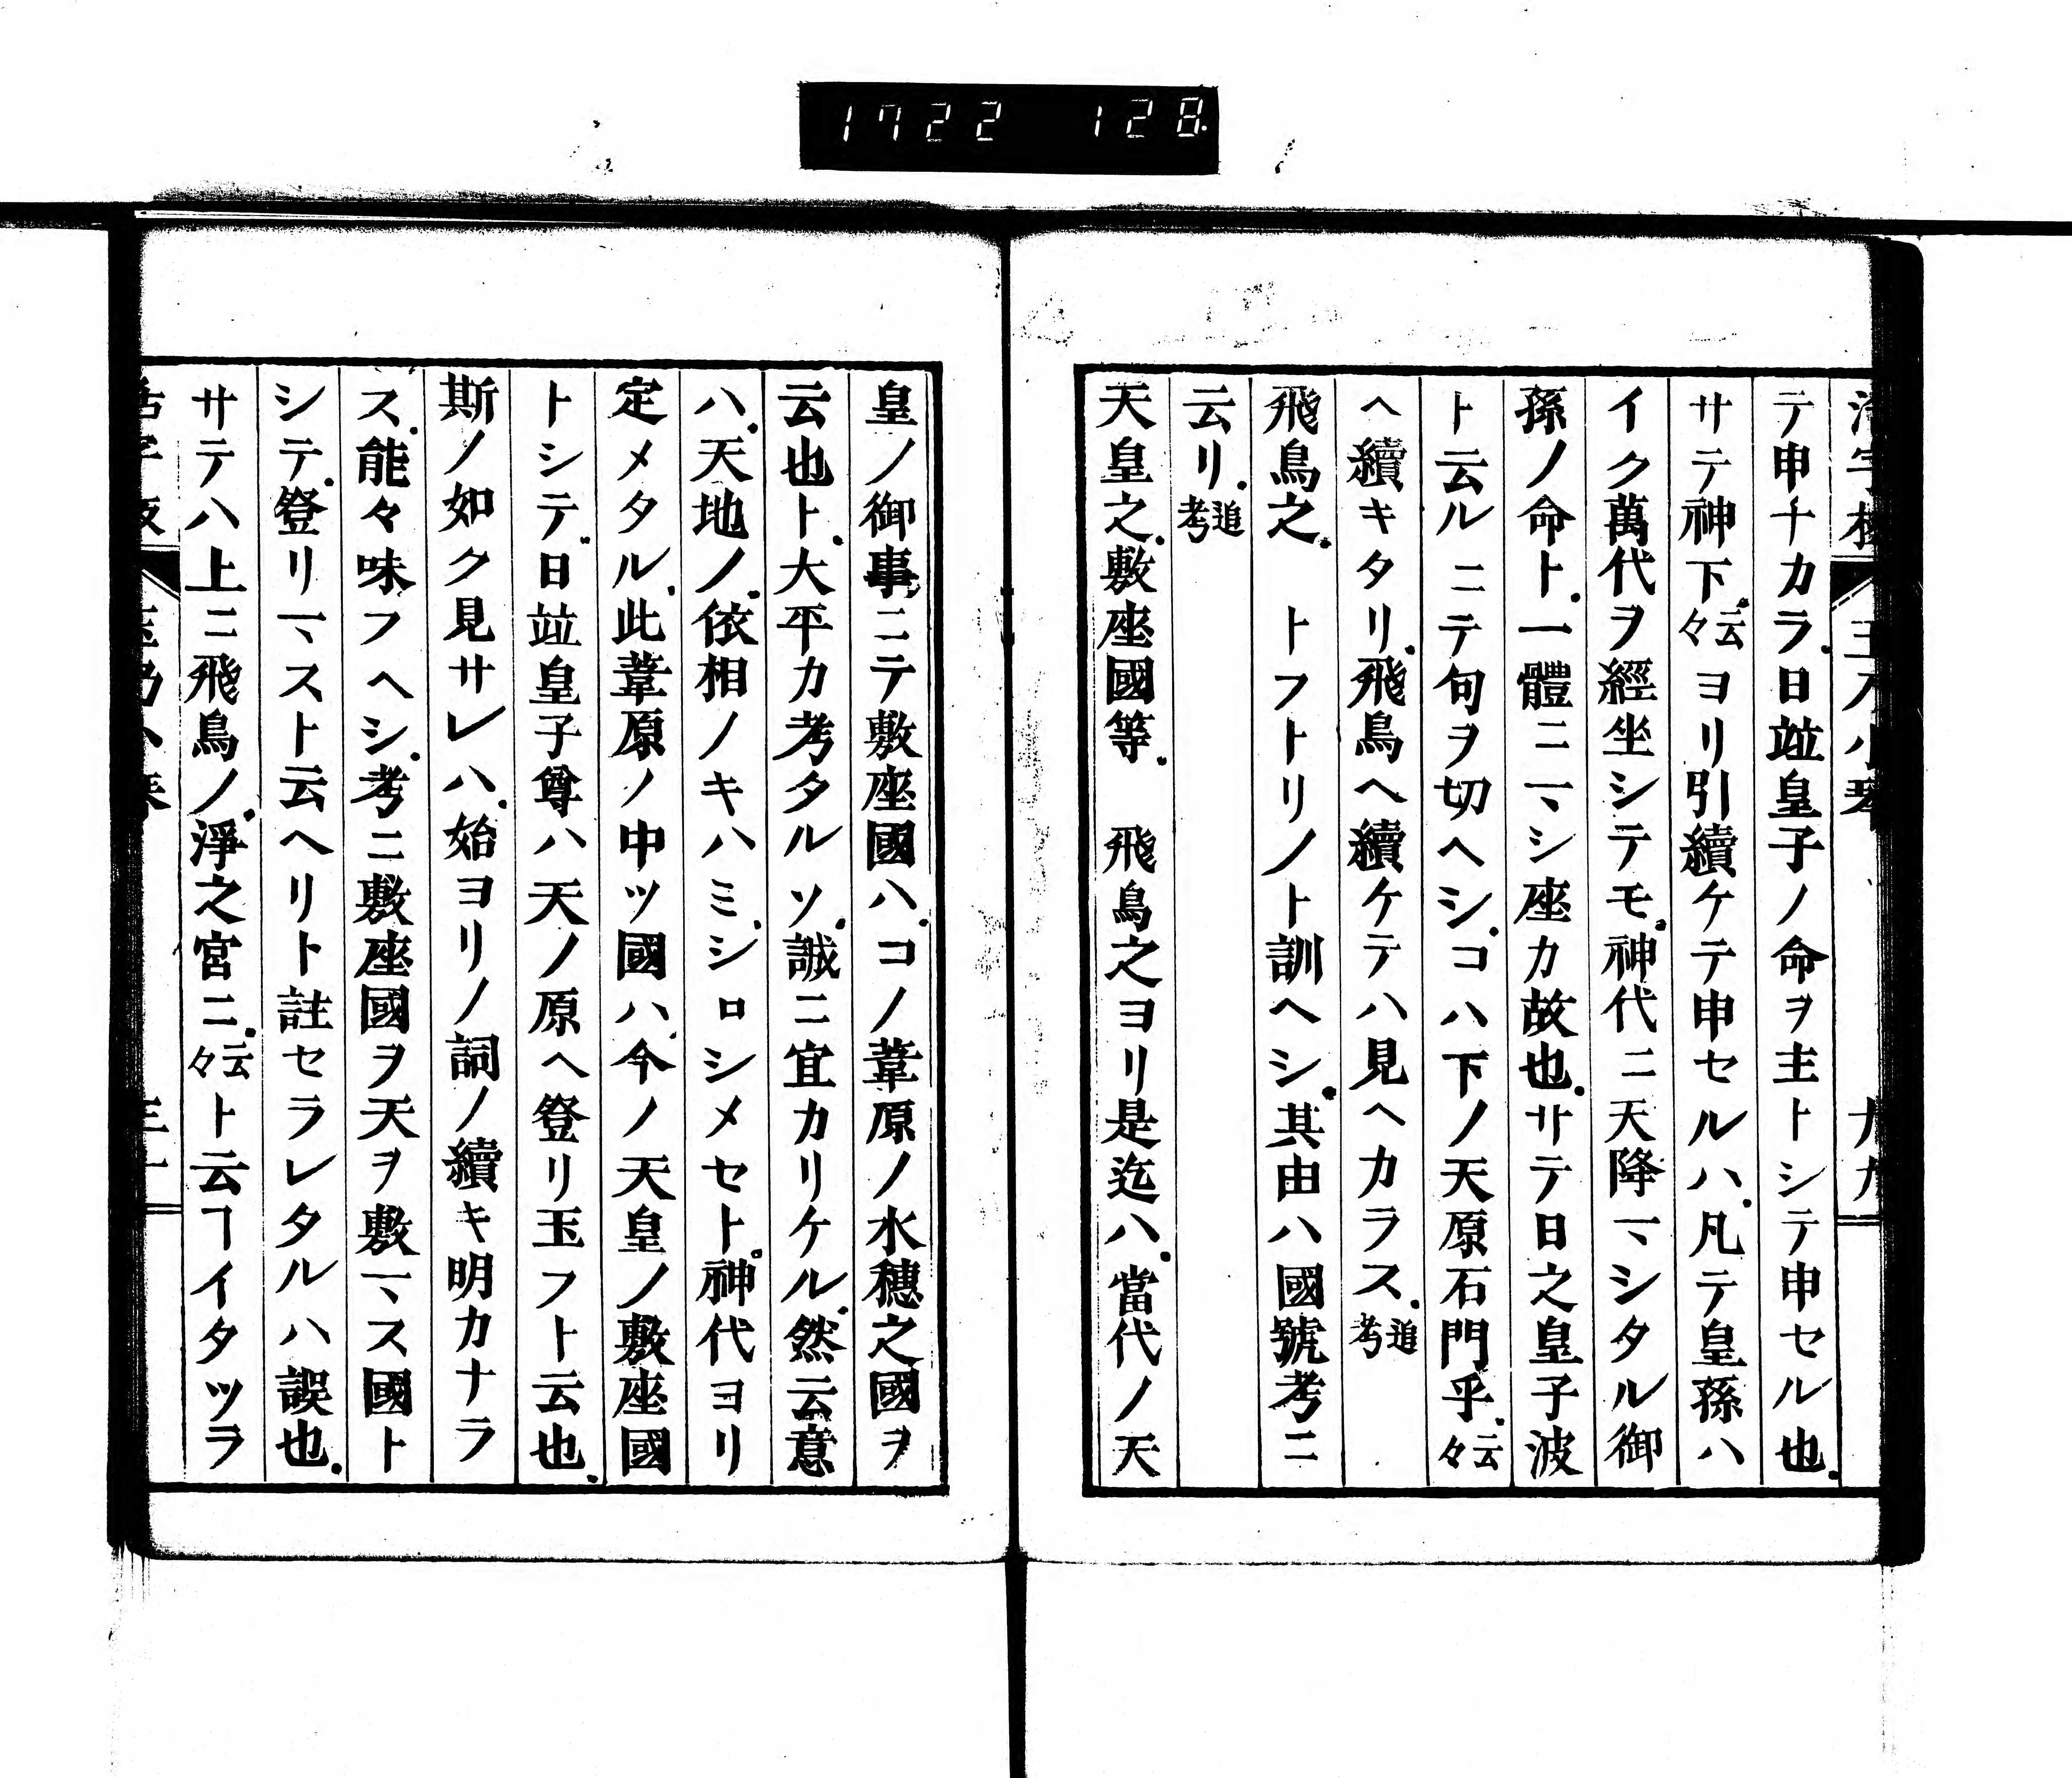 1722 128
テ申ナカラ.日竝皇子ノ命ヲ主トシテ申セル也.
サテ神下.云々ヨリ引續ケテ申セルハ.凡テ皇孫ハ
イク萬代ヲ經坐シテモ.神代ニ天降マシタル御
孫ノ命ト.一體ニマシ座カ故也.サテ日之皇子波
ト云ルニテ句ヲ切ヘシ.コハ下ノ天原石門乎.云々
ヘ續キタリ.飛鳥ヘ續ケテハ見ヘカラス.追考
飛鳥之.　トフトリノト訓ヘシ.其由ハ國號考ニ
云リ.追考
天皇之.敷座國等.　飛鳥之ヨリ是迄ハ.當代ノ天
皇ノ御事ニテ敷座國ハ.コノ葦原ノ水穗之國ヲ
云也ト.大平カ考タルソ.誠ニ宜カリケル.然云意
ハ.天地ノ.依相ノキハミ.シロシメセト.神代ヨリ
定メタル.此葦原ノ中ツ國ハ.今ノ天皇ノ敷座國
トシテ.日竝皇子尊ハ天ノ原ヘ登リ玉フト云也.
斯ノ如ク見サレハ.始ヨリノ詞ノ續キ明カナラ
ス.能々味フヘシ.考ニ敷座國ヲ天ヲ敷マス國ト
シテ.登リマスト云ヘリト註セラレタルハ誤也.
サテハ上ニ飛鳥ノ.淨之宮ニ.云々ト云ヿイタツラ